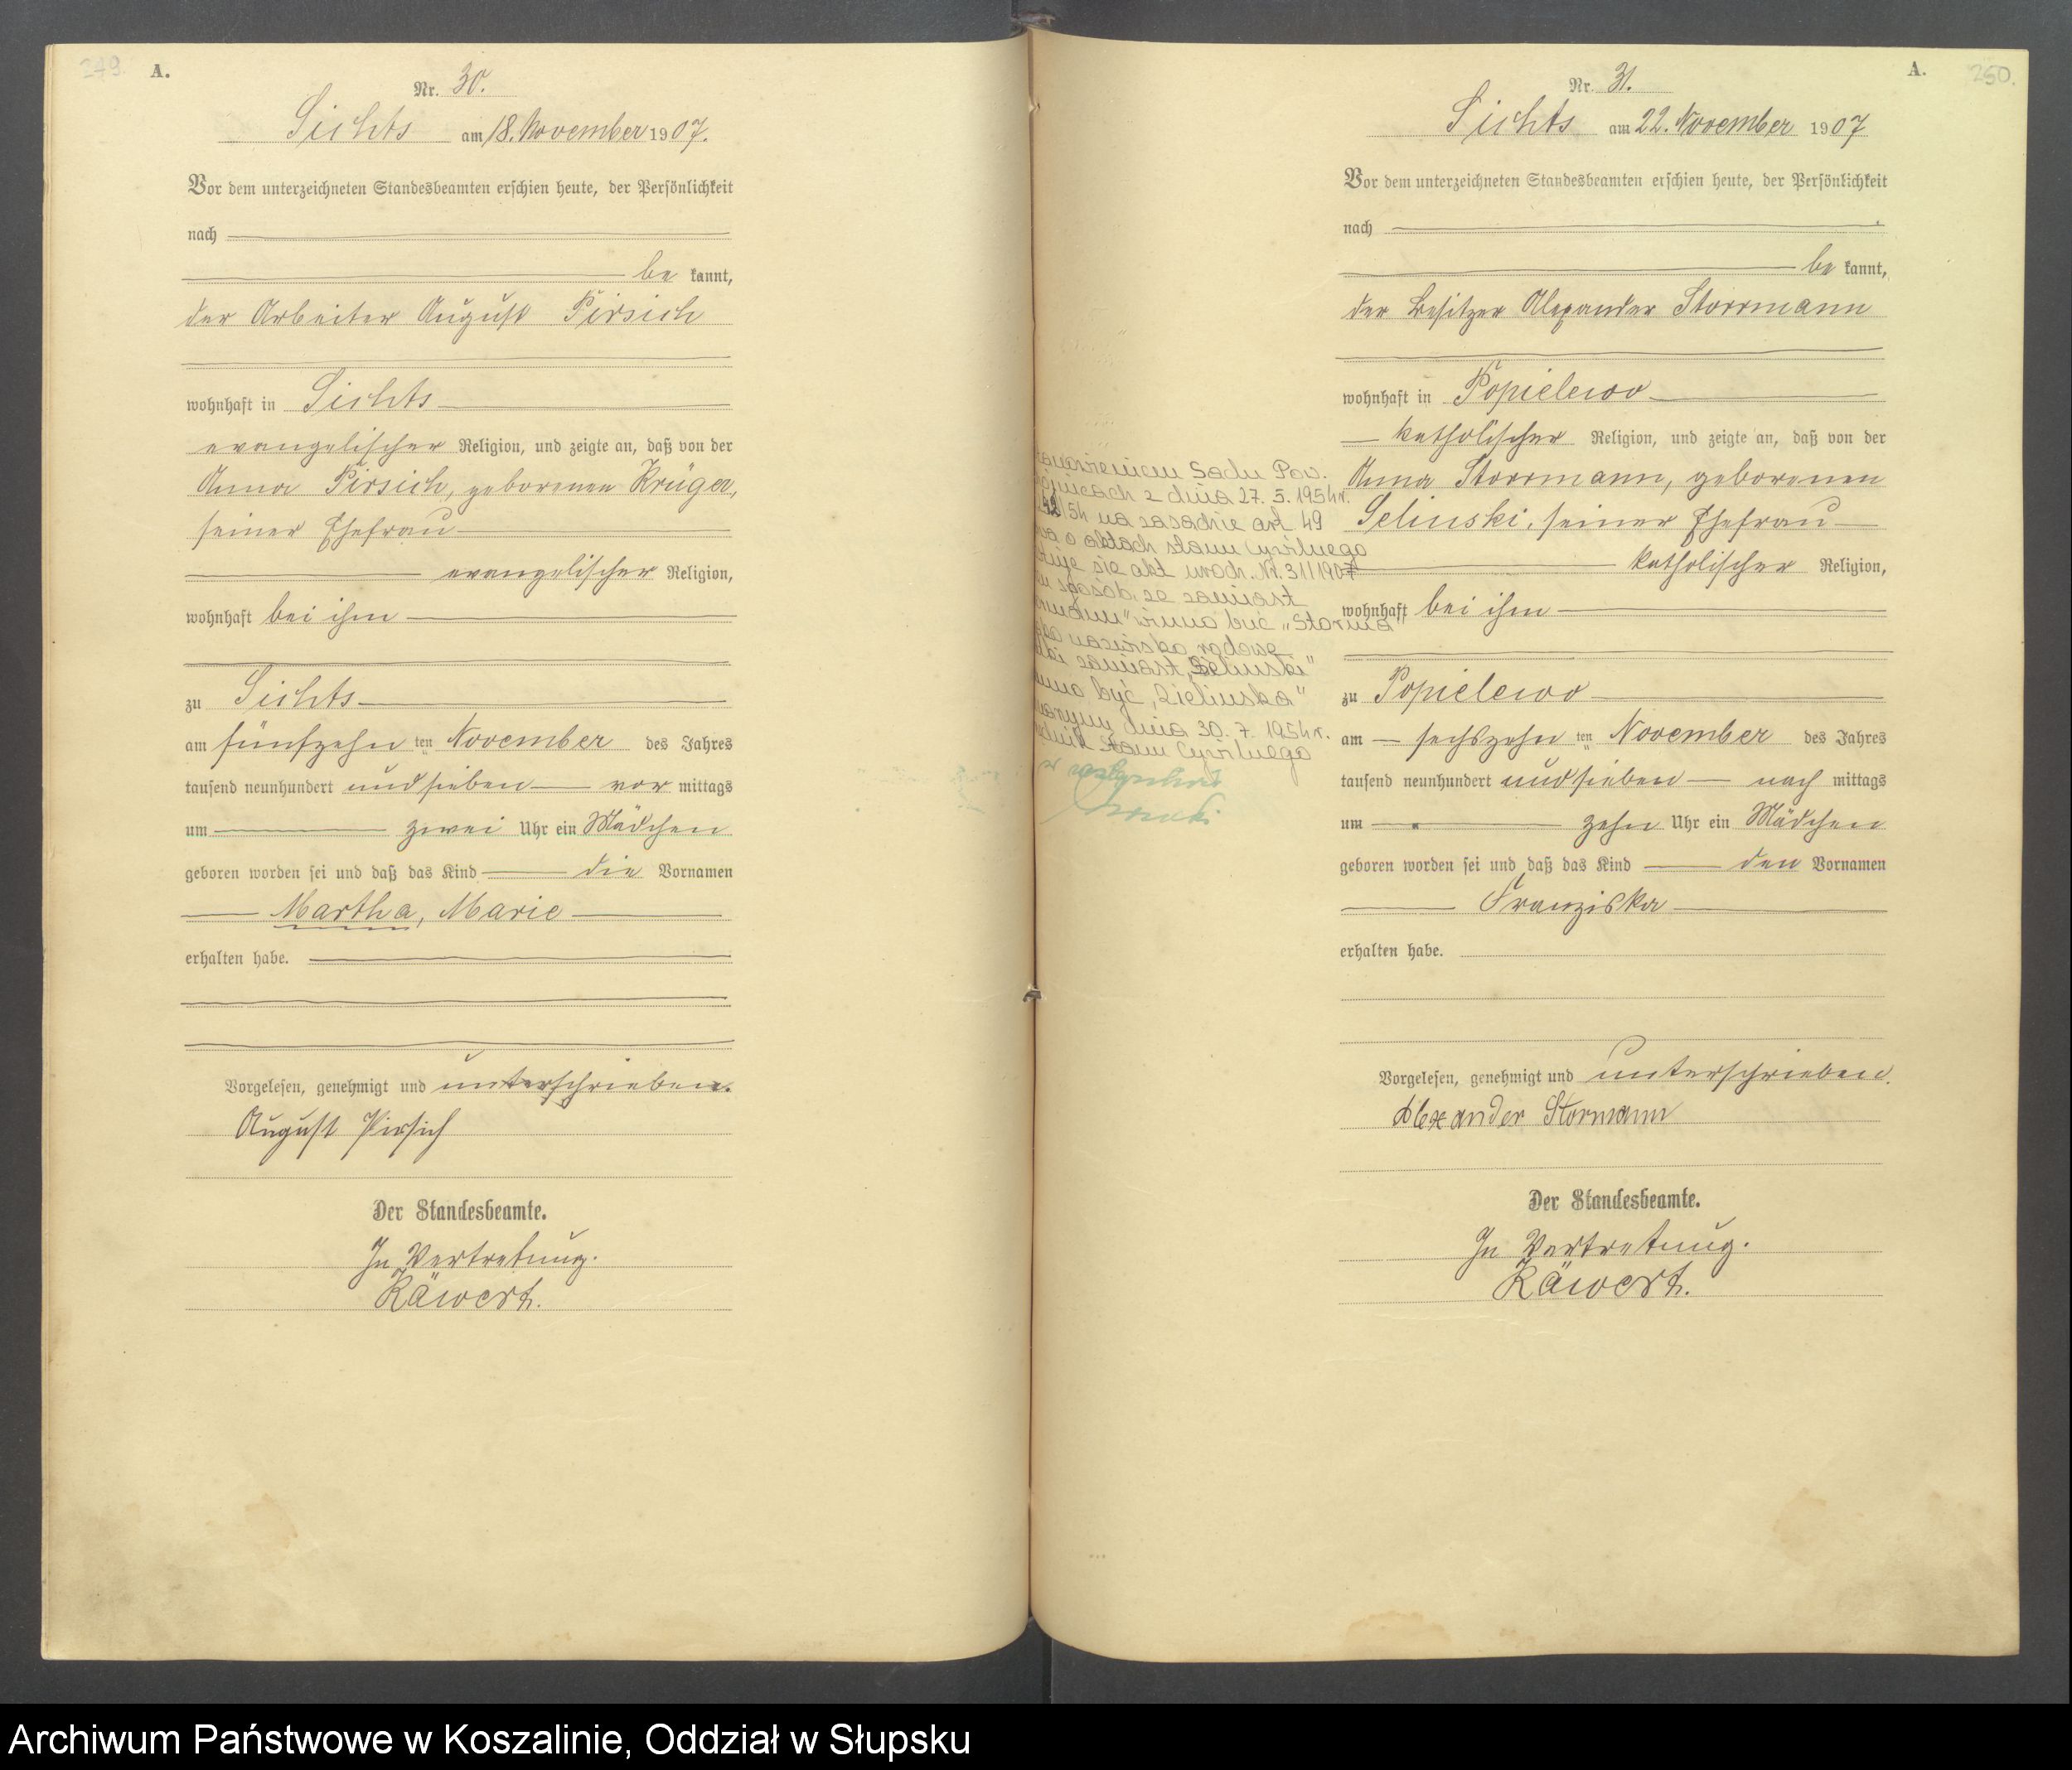 249.
A.
Nr. 30.
Sichts am 18. November 1907.
Vor dem unterzeichneten Standesbeamten erschien heute, der Persönlichkeit
nach
be kannt,
der Arbeiter August Pirsich
wohnhaft in Sichts
evangelischer Religion, und zeigte an, daß von der
Anna Pirsich, geborenen Krüger,
seiner Ehefrau
evangelischer Religion,
wohnhaft bei ihm
zu Sichts
am fünfzehn ten November des Jahres
tausend neunhundert und sieben vor mittags
um zwei Uhr ein Mädchen
geboren worden sei und daß das Kind die Vornamen
Martha, Marie
erhalten habe.
Vorgelesen, genehmigt und unterschrieben.
August Pirsich
Der Standesbeamte.
In Vertretung.
Käwert.
A.
250.
Nr. 31.
Sichts am 22. November 1907
Vor dem unterzeichneten Standesbeamten erschien heute, der Persönlichkeit
nach
be kannt,
der Besitzer Alexander Storrmann
wohnhaft in Popielewo
katholischer Religion, und zeigte an, daß von der
Anna Storrmann, geborenen
Selinski, seiner Ehefrau
katholischer Religion,
wohnhaft bei ihm
zu Popielewo
am sechszehn ten November des Jahres
tausend neunhundert und sieben nach mittags
um zehn Uhr ein Mädchen
geboren worden sei und daß das Kind den Vornamen
Franziska
erhalten habe.
Vorgelesen, genehmigt und unterschrieben.
Alexander Stormann
Der Standesbeamte.
In Vertretung.
Käwert.
Sądu Pow.
z dnia 27. 5. 1954 r.
/54 na zasadzie art 49
o aktach stanu cywilnego
się akt urodz. Nr. 31/1907
sposób, że zamiast
winno być „Storma"
nazwisko rodowe
zamiast „Selinski"
być „Zielinska"
dnia 30. 7. 1954 r.
Stanu Cywilnego
Archiwum Państwowe w Koszalinie, Oddział w Słupsku